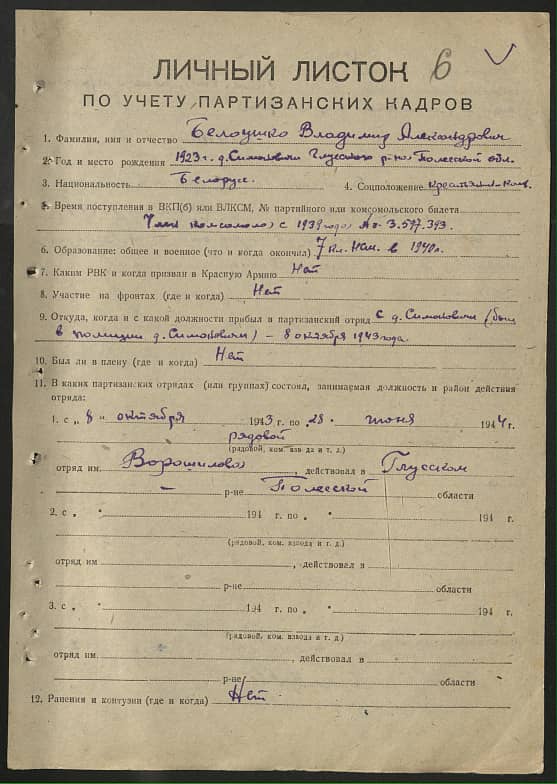 ЛИЧНЫЙ ЛИСТОК 6
ПО УЧЕТУ ПАРТИЗАНСКИХ КАДРОВ
1. Фамилия, имя и отчество Белоушко Владимир Александрович
2. Год и место рождения 1923 г. д. Симоновичи Глусского р-на Полесской обл.
3. Национальность Белорус. 4. Соцположение
5. Время поступления в ВКП(б) или ВЛКСМ, № партийного или комсомольского билета
Член комсомола с 1939 года № 3.597.393.
6. Образование: общее и военное (что и когда окончил) 7 кл. в 1940 г.
7. Каким РВК и когда призван в Красную Армию Нет
8. Участие на фронтах (где и когда) Нет
9. Откуда, когда и с какой должности прибыл в партизанский отряд с д. Симоновичи (был
в полиции д. Симоновичи) – 8 октября 1943 года.
10. Был ли в плену (где и когда) Нет
11. В каких партизанских отрядах (или группах) состоял, занимаемая должность и район действия
отряда:
1. с „ 8 " октября 1943 г. по „ 28 " июня 1944 г.
рядовой
(рядовой, ком. взвода и т. д.)
отряд им. Ворошилова, действовал в Глусском
– р-не Полесской области
2. с „ " 194 г. по „ " 194 г.
(рядовой, ком. взвода и т. д.)
отряд им , действовал в
р-не области
3. с „ " 194 г. по „ " 194 г.
(рядовой, ком. взвода и т. д.)
отряд им. , действовал в
р-не области
12. Ранения и контузии (где и когда) Нет